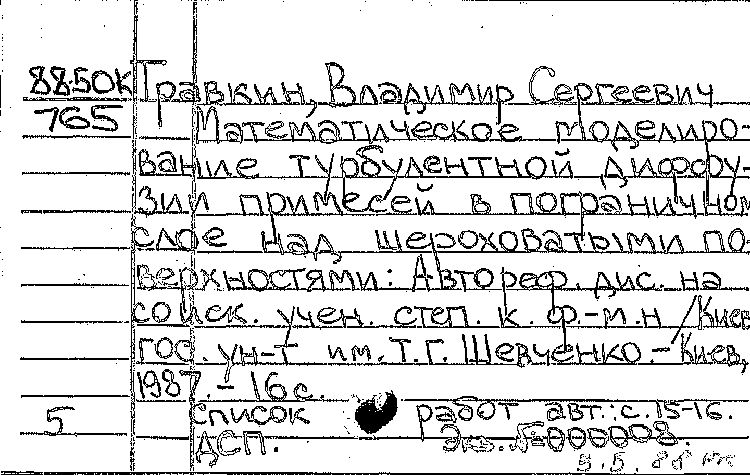 88-50К Травкин, Владимир Сергеевич
765 Математическое моделиро-
вание турбулентной диффу-
зии примесей в пограничном
слое над шероховатыми по-
верхностями: Автореф. дис. на
соиск. учен. степ. к. ф.-м.н / Киев
гос. ун-т им. Т.Г. Шевченко. - Киев,
1987. - 16 с.
5 Список работ авт.: с. 15-16.
ДСП. Экз. №000008.